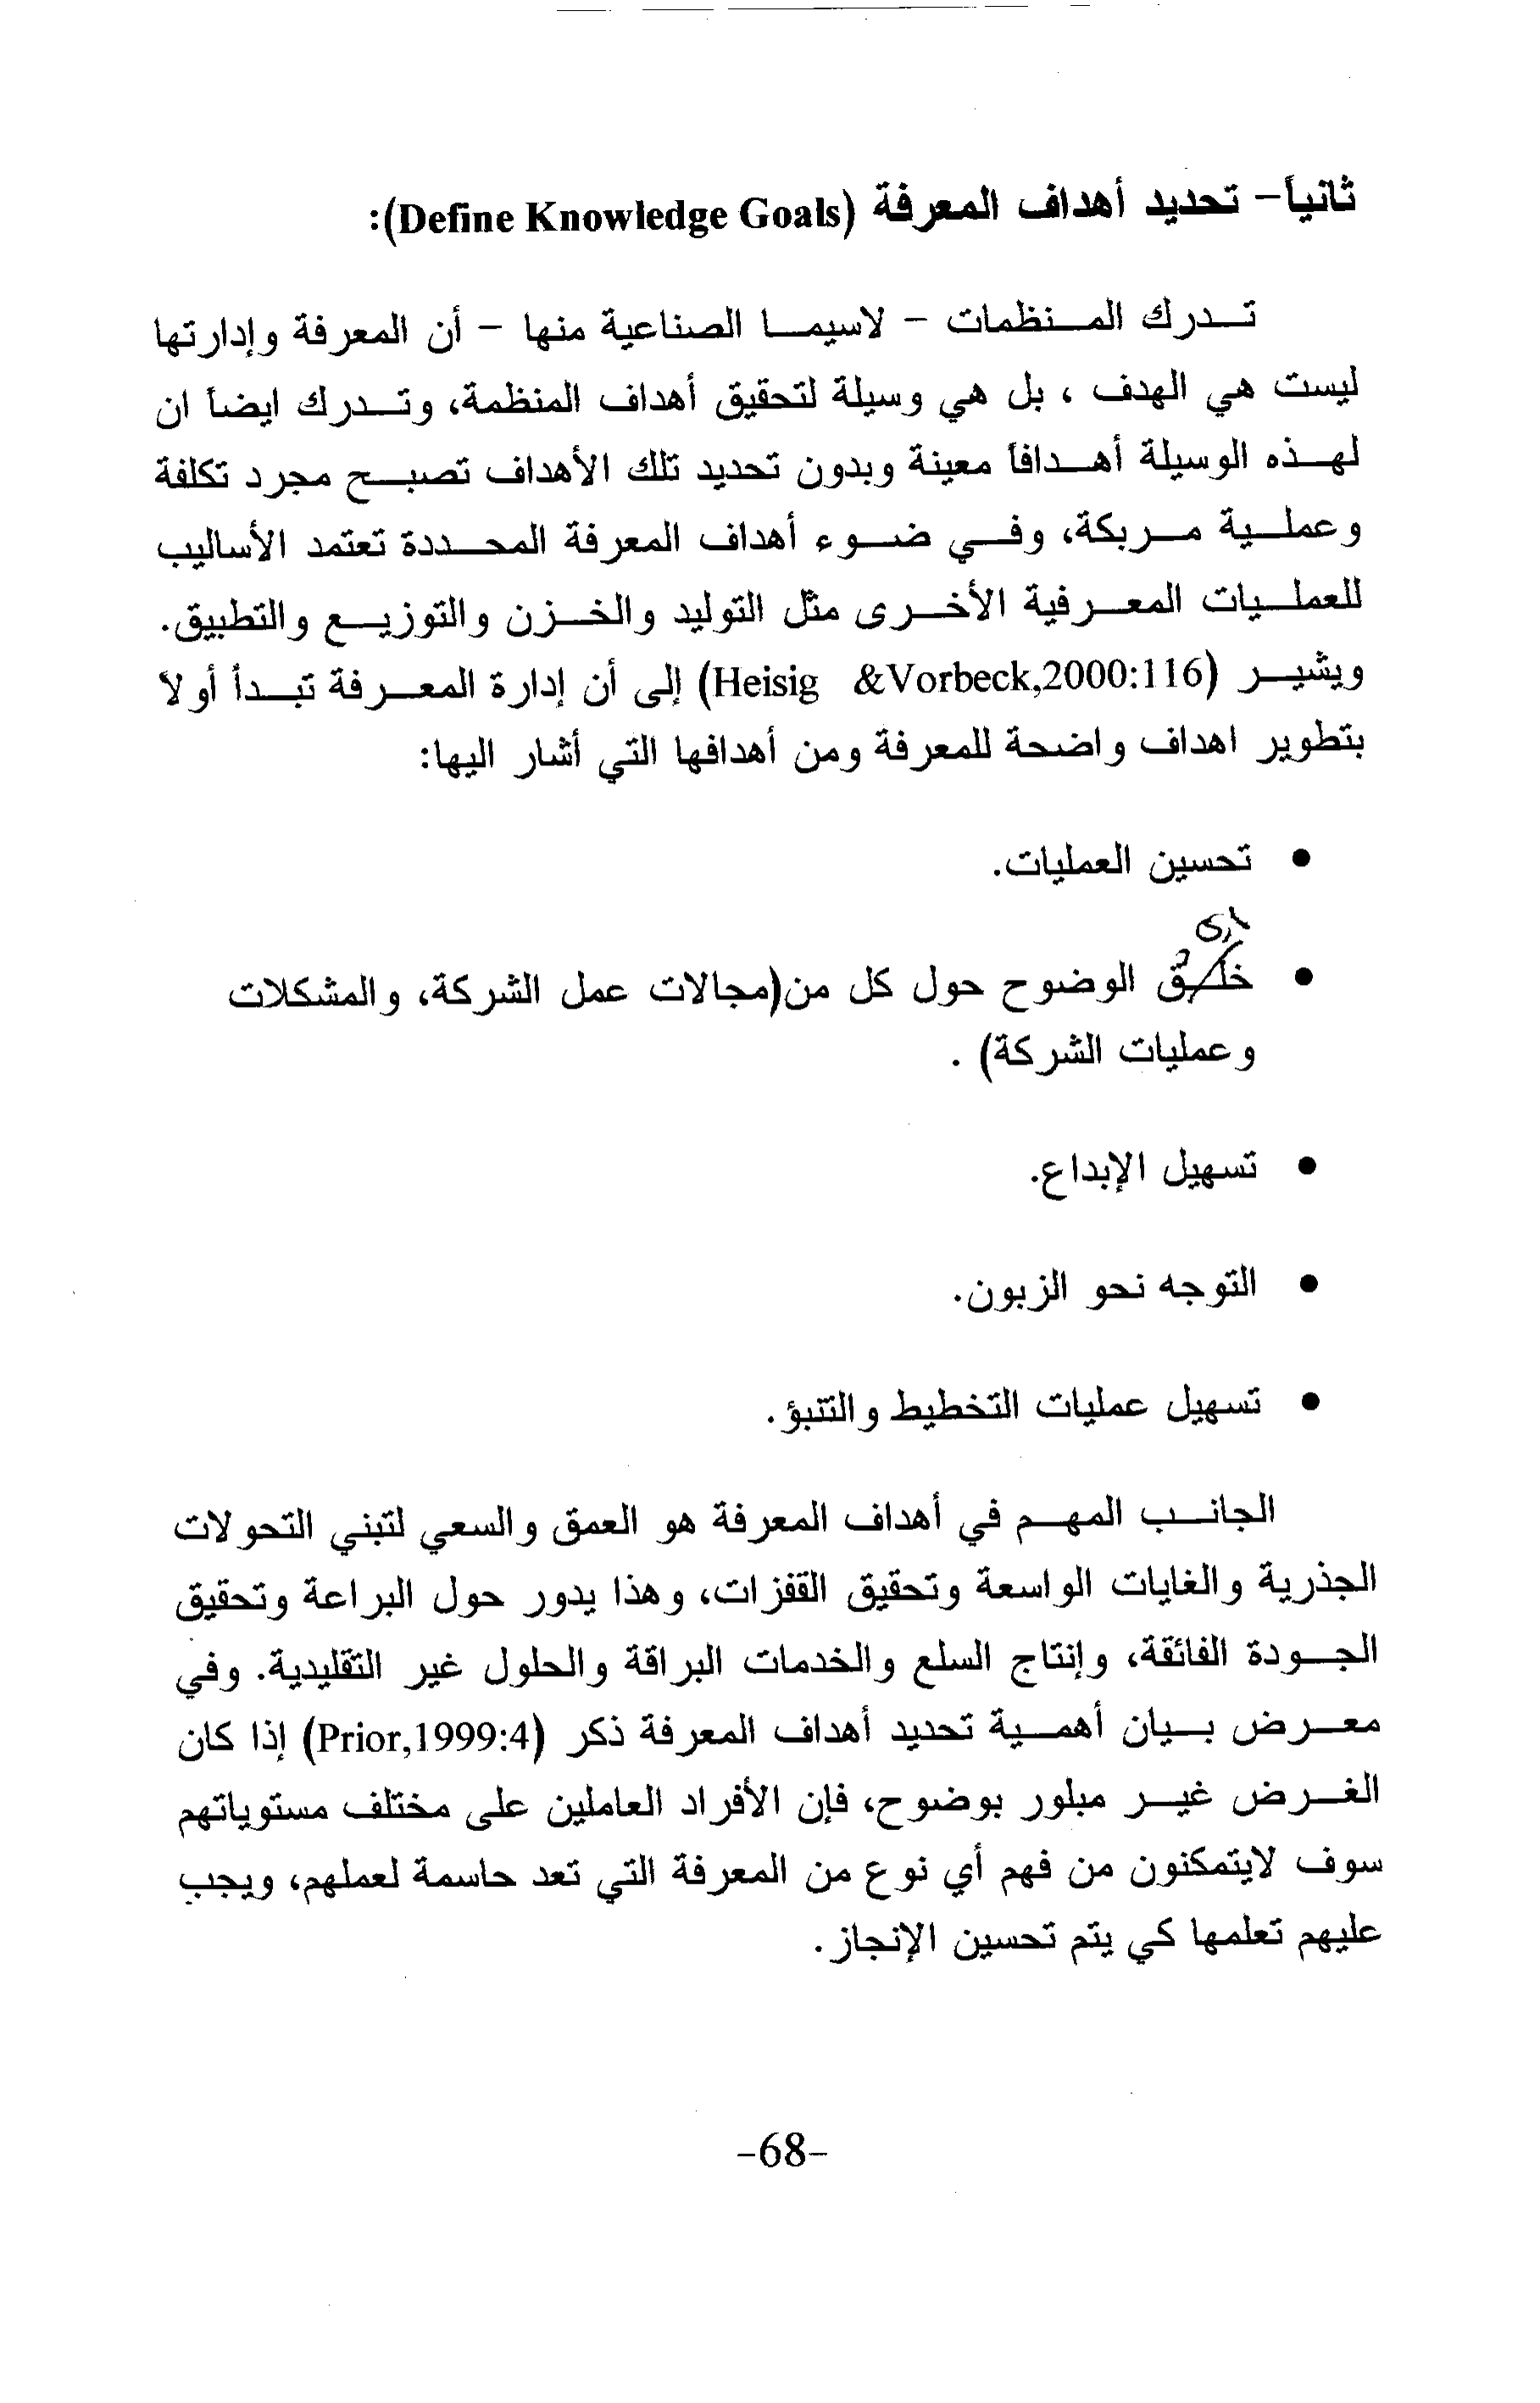 ثانياً- تحديد أهداف المعرفة (Define Knowledge Goals):
تدرك المنظمات - لاسيما الصناعية منها - أن المعرفة وإدارتها
ليست هي الهدف ، بل هي وسيلة لتحقيق أهداف المنظمة، وتدرك ايضاً ان
لهذه الوسيلة أهدافاً معينة وبدون تحديد تلك الأهداف تصبح مجرد تكلفة
وعملية مربكة، وفي ضوء أهداف المعرفة المحددة تعتمد الأساليب
للعمليات المعرفية الأخرى مثل التوليد والخزن والتوزيع والتطبيق.
ويشير (Heisig &Vorbeck,2000:116) إلى أن إدارة المعرفة تبدأ أولا
بتطوير اهداف واضحة للمعرفة ومن أهدافها التي أشار اليها:
• تحسين العمليات.
• خلق الوضوح حول كل من(مجالات عمل الشركة، والمشكلات
وعمليات الشركة) .
• تسهيل الإبداع.
• التوجه نحو الزبون.
• تسهيل عمليات التخطيط والتنبؤ.
الجانب المهم في أهداف المعرفة هو العمق والسعي لتبني التحولات
الجذرية والغايات الواسعة وتحقيق القفزات، وهذا يدور حول البراعة وتحقيق
الجودة الفائقة، وإنتاج السلع والخدمات البراقة والحلول غير التقليدية. وفي
معرض بيان أهمية تحديد أهداف المعرفة ذكر (Prior,1999:4) إذا كان
الغرض غير مبلور بوضوح، فإن الأفراد العاملين على مختلف مستوياتهم
سوف لايتمكنون من فهم أي نوع من المعرفة التي تعد حاسمة لعملهم، ويجب
عليهم تعلمها كي يتم تحسين الإنجاز.
-68-